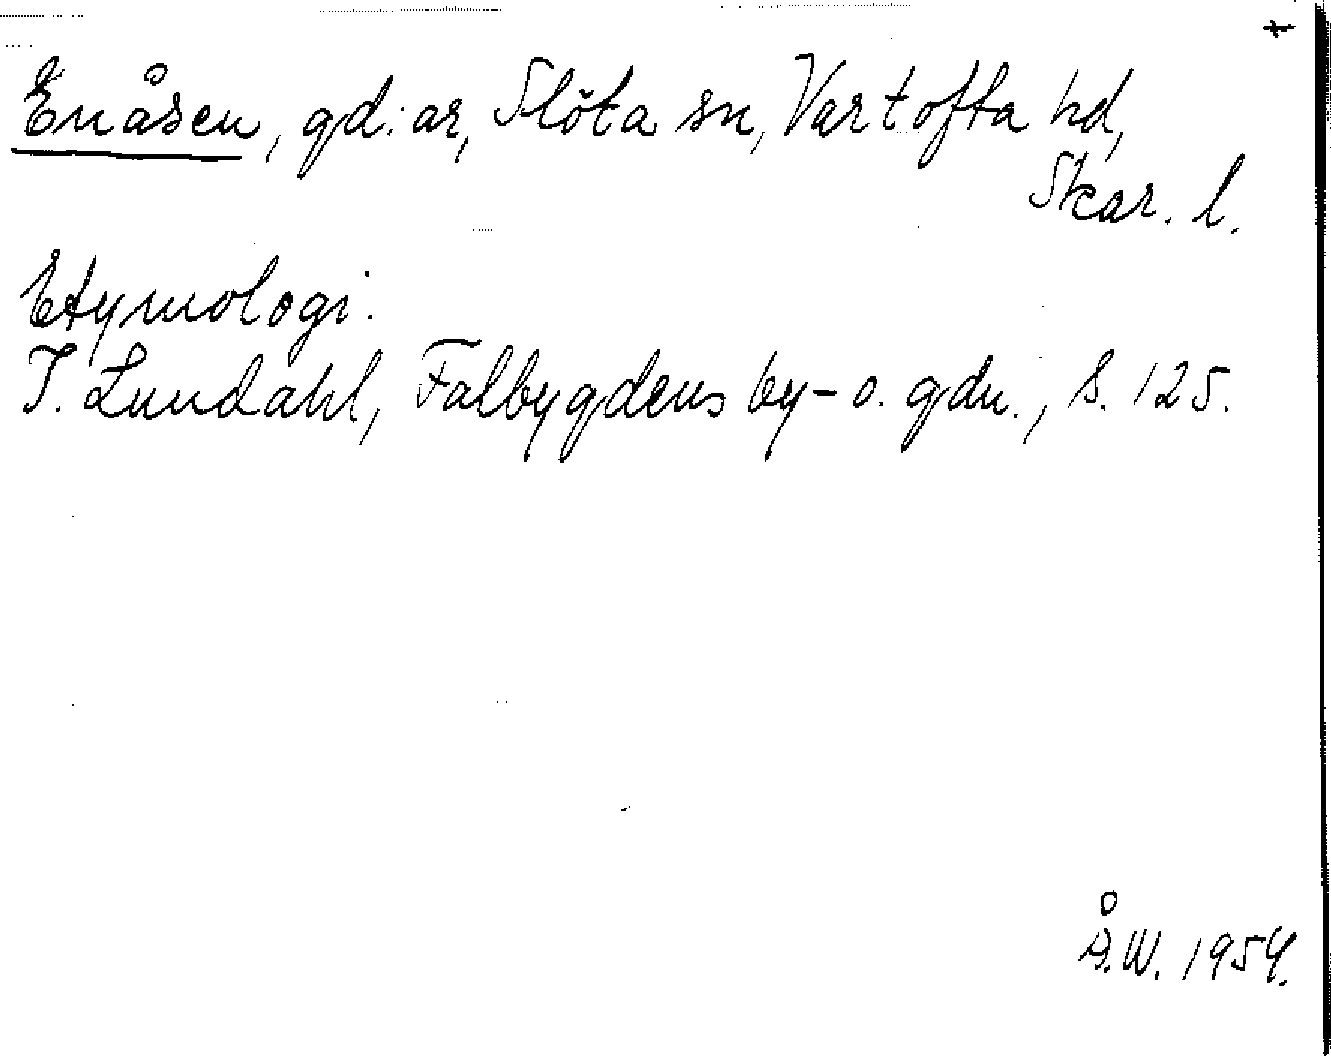 +
Enåsen, gd:ar, Slöta sn, Vartofta hd,
Skar. l.
Etymologi:
I. Lundahl, Falbygdens by- o. gdn., s. 125.
Å.W. 1954.